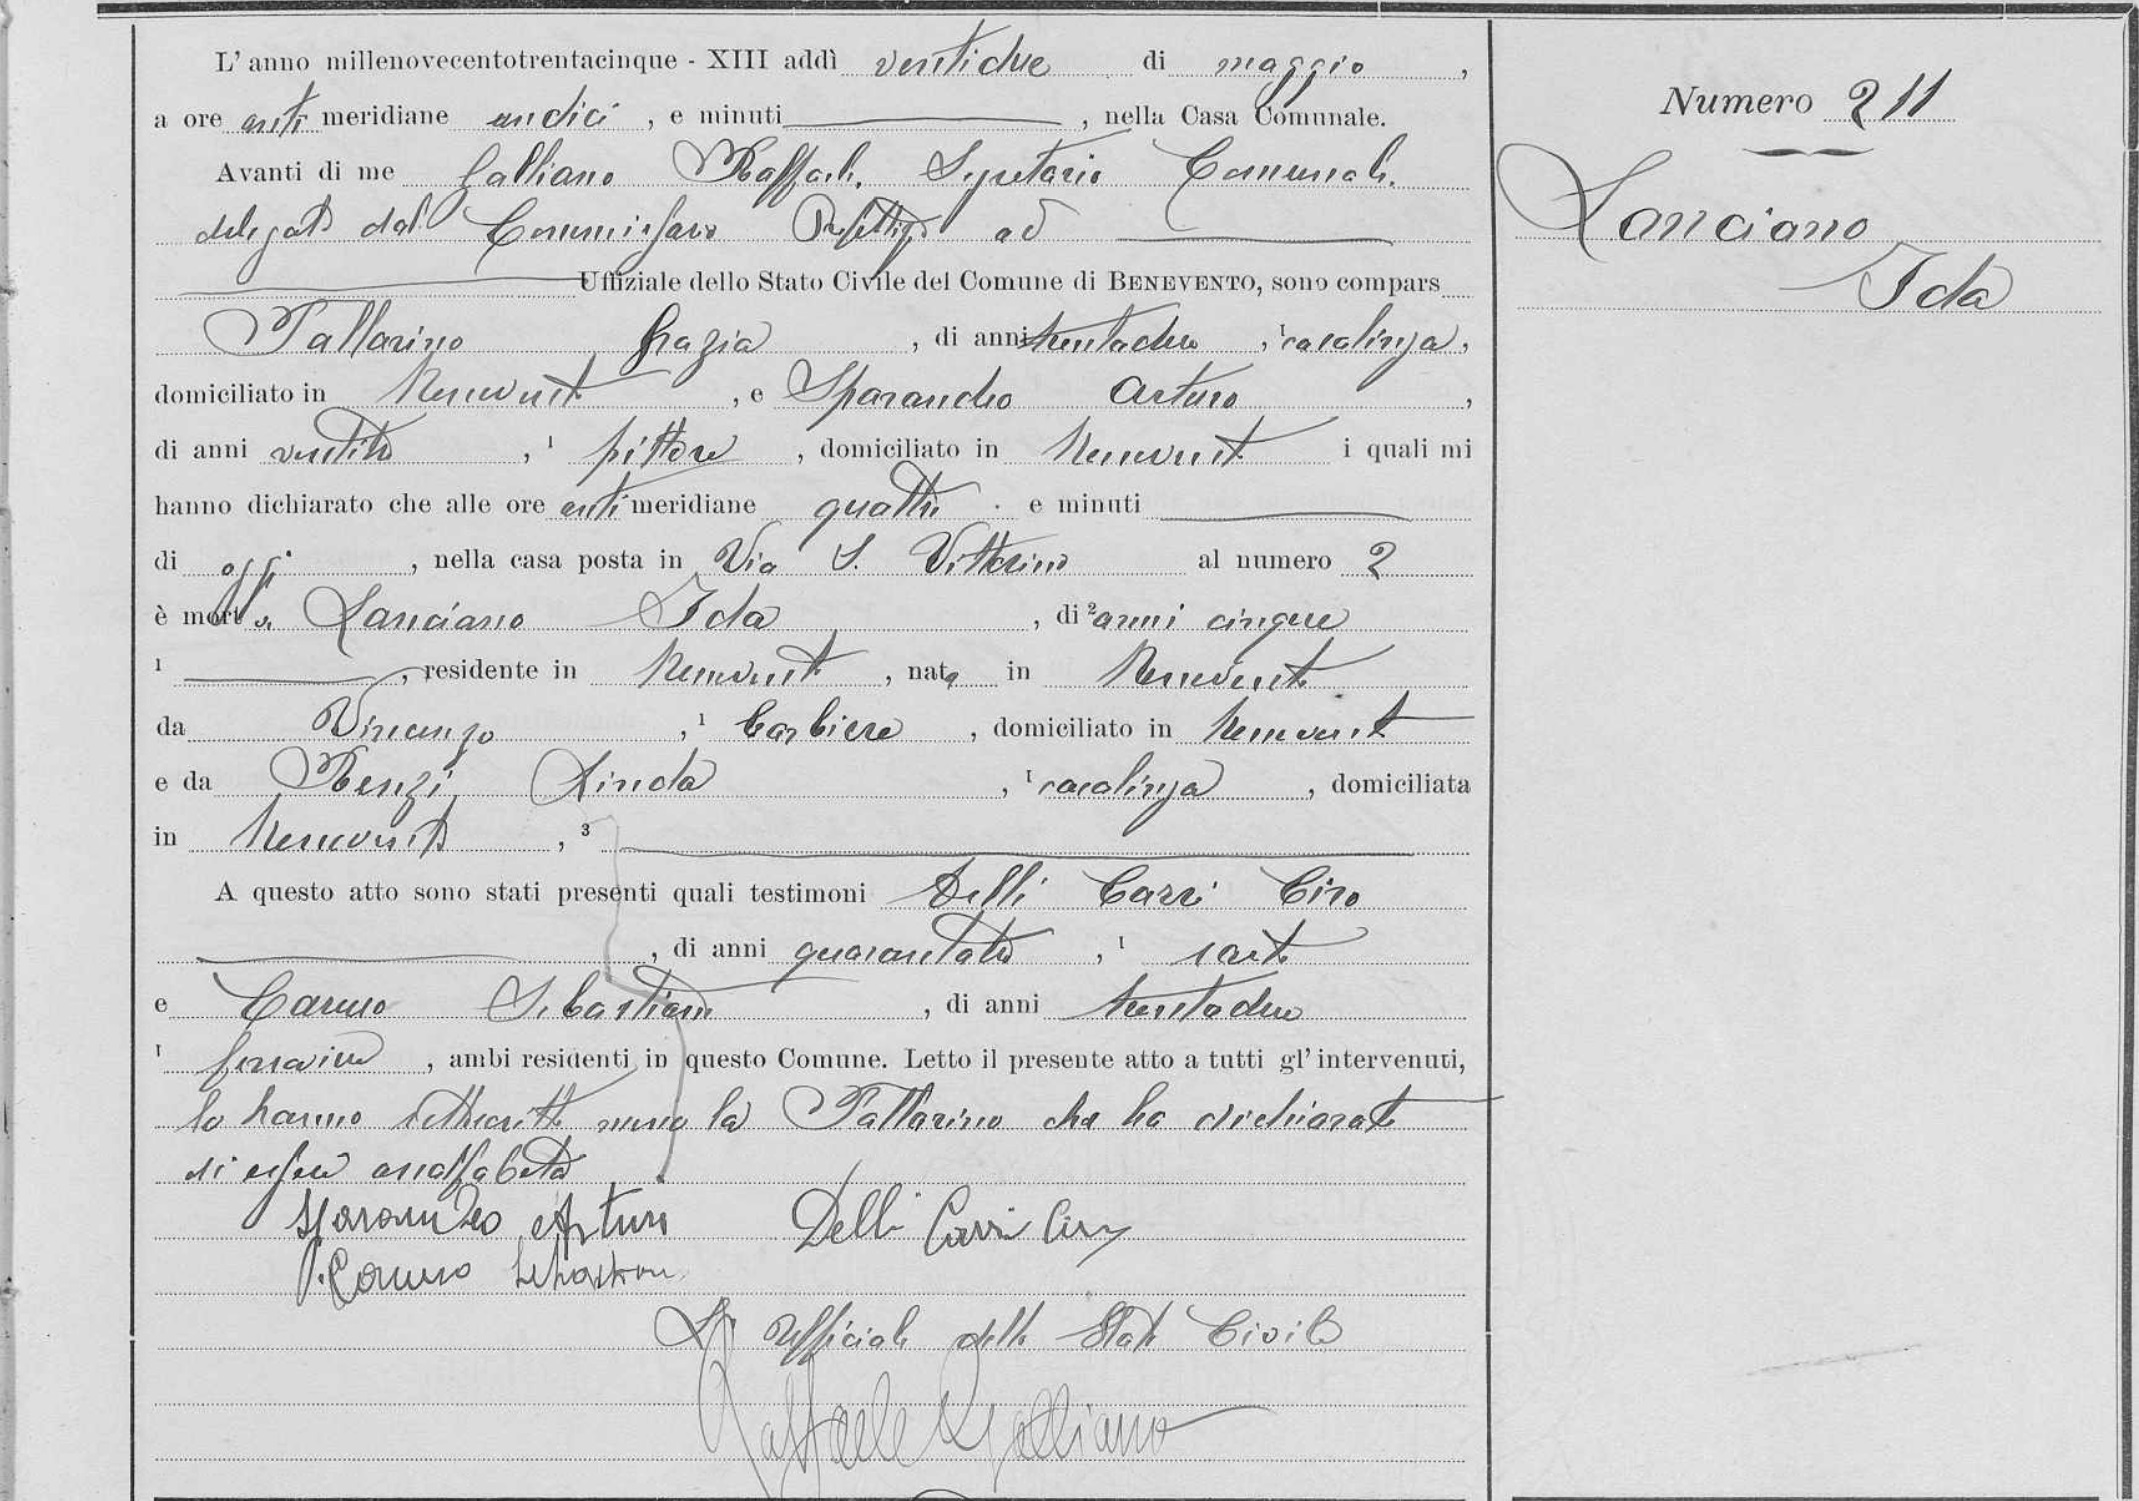 L'anno millenovecentotrentacinque - XIII addì ventidue di maggio,
a ore anti meridiane undici, e minuti, nella Casa Comunale.
Avanti di me Galliano Raffaele, Segretario Comunale,
delegato dal Commissario Prefettizio ad
Uffiziale dello Stato Civile del Comune di BENEVENTO, sono compars
Pallarino Grazia, di anni trentadue, ¹ casalinga,
domiciliato in Benevento, e Sparandeo Arturo,
di anni, ¹ pittore, domiciliato in Benevento i quali mi
hanno dichiarato che alle ore anti meridiane quattro e minuti
di oggi, nella casa posta in Via S. Vittorino al numero 2
è morta Lanciano Ida, di ² anni cinque
¹, residente in Benevento, nata in Benevento
da Vincenzo, ¹ barbiere, domiciliato in Benevento
e da Renzi Linda, ¹ casalinga, domiciliata
in Benevento, ³
A questo atto sono stati presenti quali testimoni Delli Carri Ciro
, di anni, ¹ sarto
e Caruso Sebastiano, di anni trentadue
¹, ambi residenti in questo Comune. Letto il presente atto a tutti gl'intervenuti,
lo hanno sottoscritto meno la Pallarino che ha dichiarato
di essere analfabeta
Sparandeo Arturo Delli Carri Ciro
Caruso Sebastiano
L'Ufficiale dello Stato Civile
Raffaele Galliano
Numero 211
Lanciano
Ida